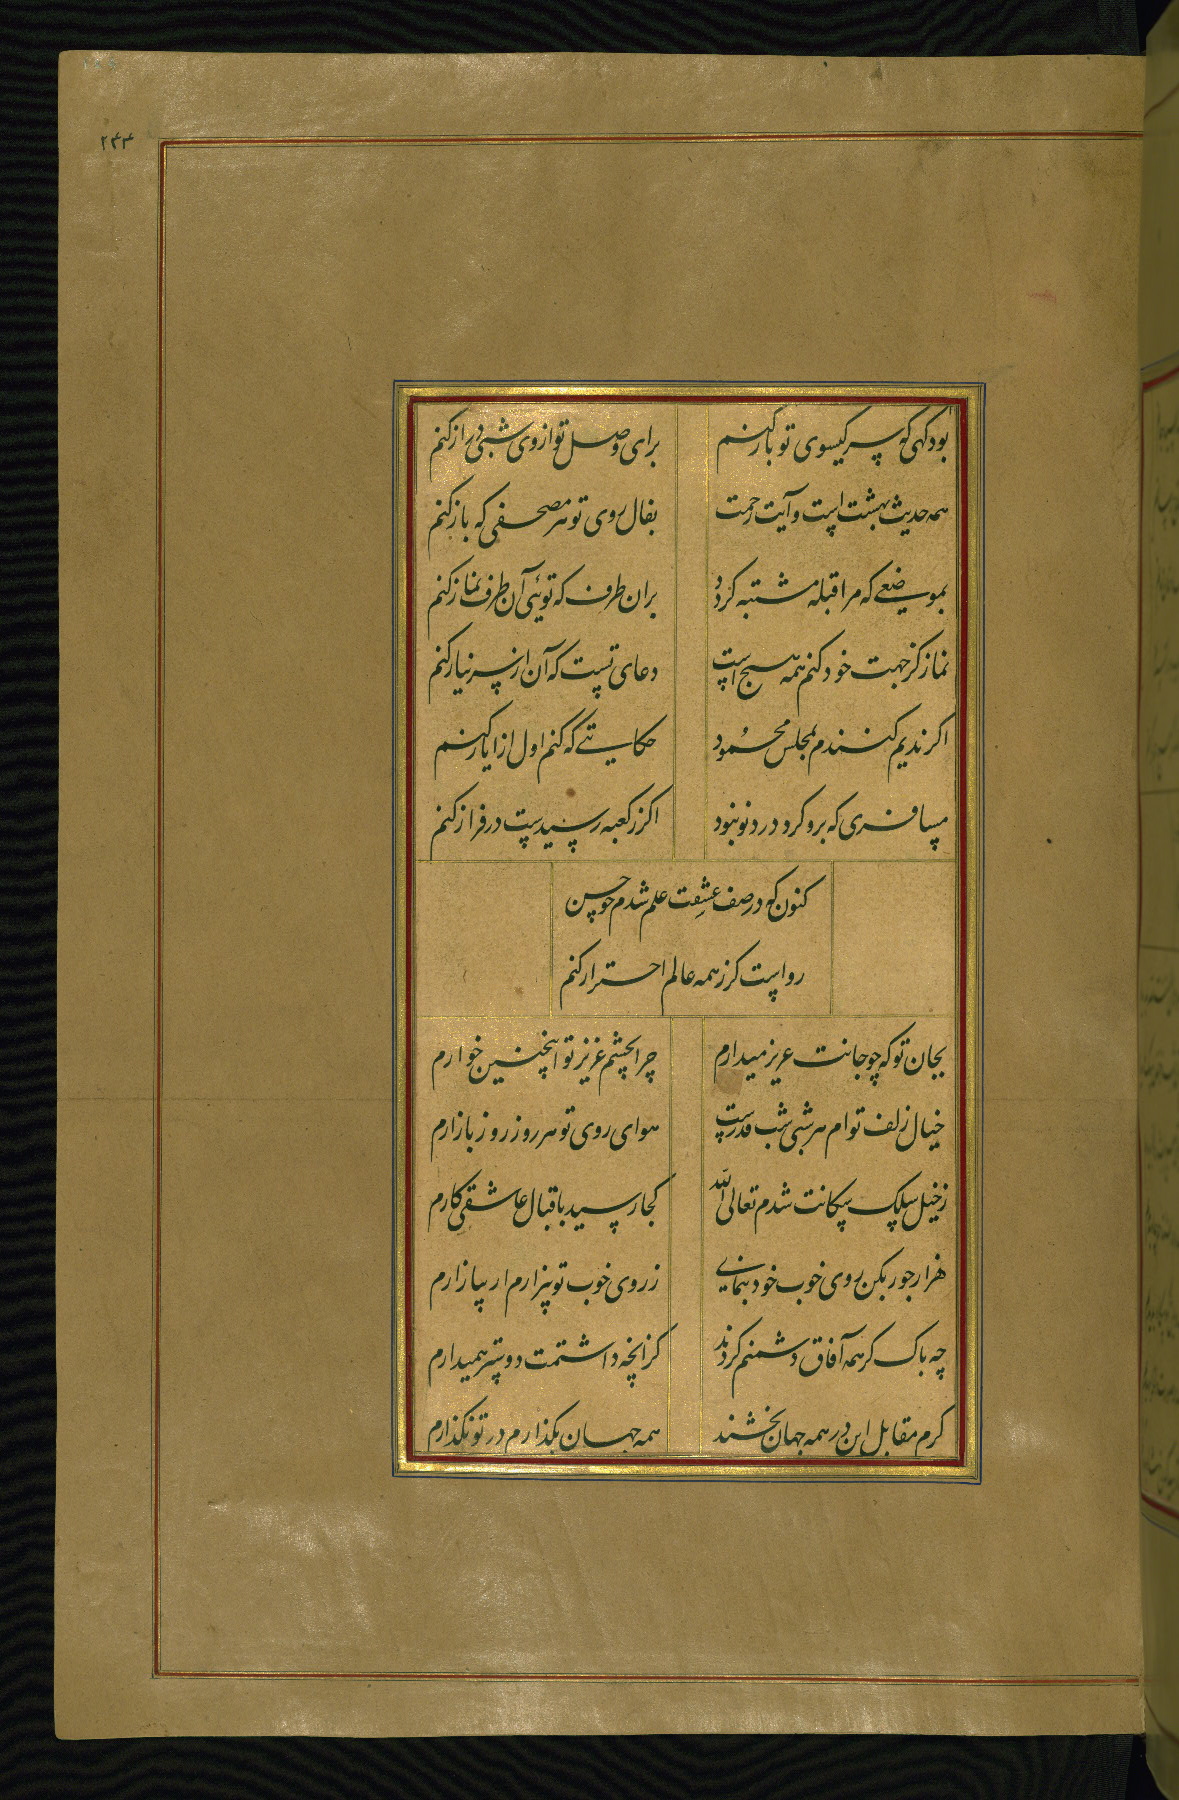 ۲۴۳
بود گهی که سر گیسوی تو باز کنم
برای وصل تو از وی شبی دراز کنم
همه حدیث بهشت است و آیت رحمت
بفال روی تو هر مصحفی که باز کنم
بموضعی که مرا قبله مشتبه گردد
بران طرف که توئی آن طرف نماز کنم
نماز کز جهت خود کنم همه هیچ است
دعای تست که آن از سر نیاز کنم
اگر ندیم کنندم بمجلس محمود
حکایتی که کنم اول از ایاز کنم
مسافری که برو گرد درد تو نبود
اگر ز کعبه رسیدست در فراز کنم
کنون که در صف عشقت علم شدم چو حسن
رواست کز همه عالم احتراز کنم
بجان تو که چو جانت عزیز میدارم
چرا بچشم عزیز تو اینچنین خوارم
خیال زلف توام هر شبی شب قدرست
هوای روی تو هر روز روز بازارم
ز خیل سلک سگانت شدم تعالی الله
کجا رسید باقبال عاشقی کارم
هزار جور بکن روی خوب خود بنمای
ز روی خوب تو بیزارم ار بیازارم
چه باک گر همه آفاق دشمنم گردند
کزانچه داشتمت دوستر همیدارم
گرم مقابل این در همه جهان بخشند
همه جهان بگذارم در تو نگذارم